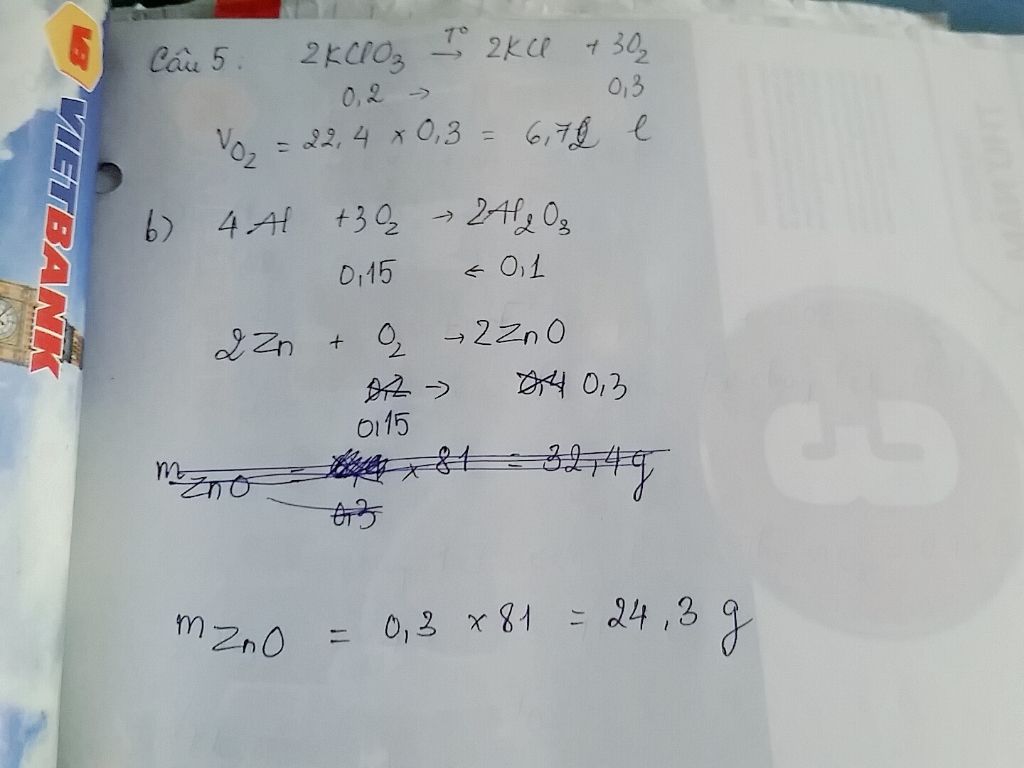 VB VIETBANK
Câu 5: 2KClO₃ T° → 2KCl + 3O₂
0,2 → 0,3
V O₂ = 22,4 × 0,3 = 6,72 l
b) 4Al + 3O₂ → 2Al₂O₃
0,15 ← 0,1
2Zn + O₂ → 2ZnO
0,2 → 0,4 0,3
0,15
m ZnO = × 81 = 32,4g
0,3
m ZnO = 0,3 × 81 = 24,3 g